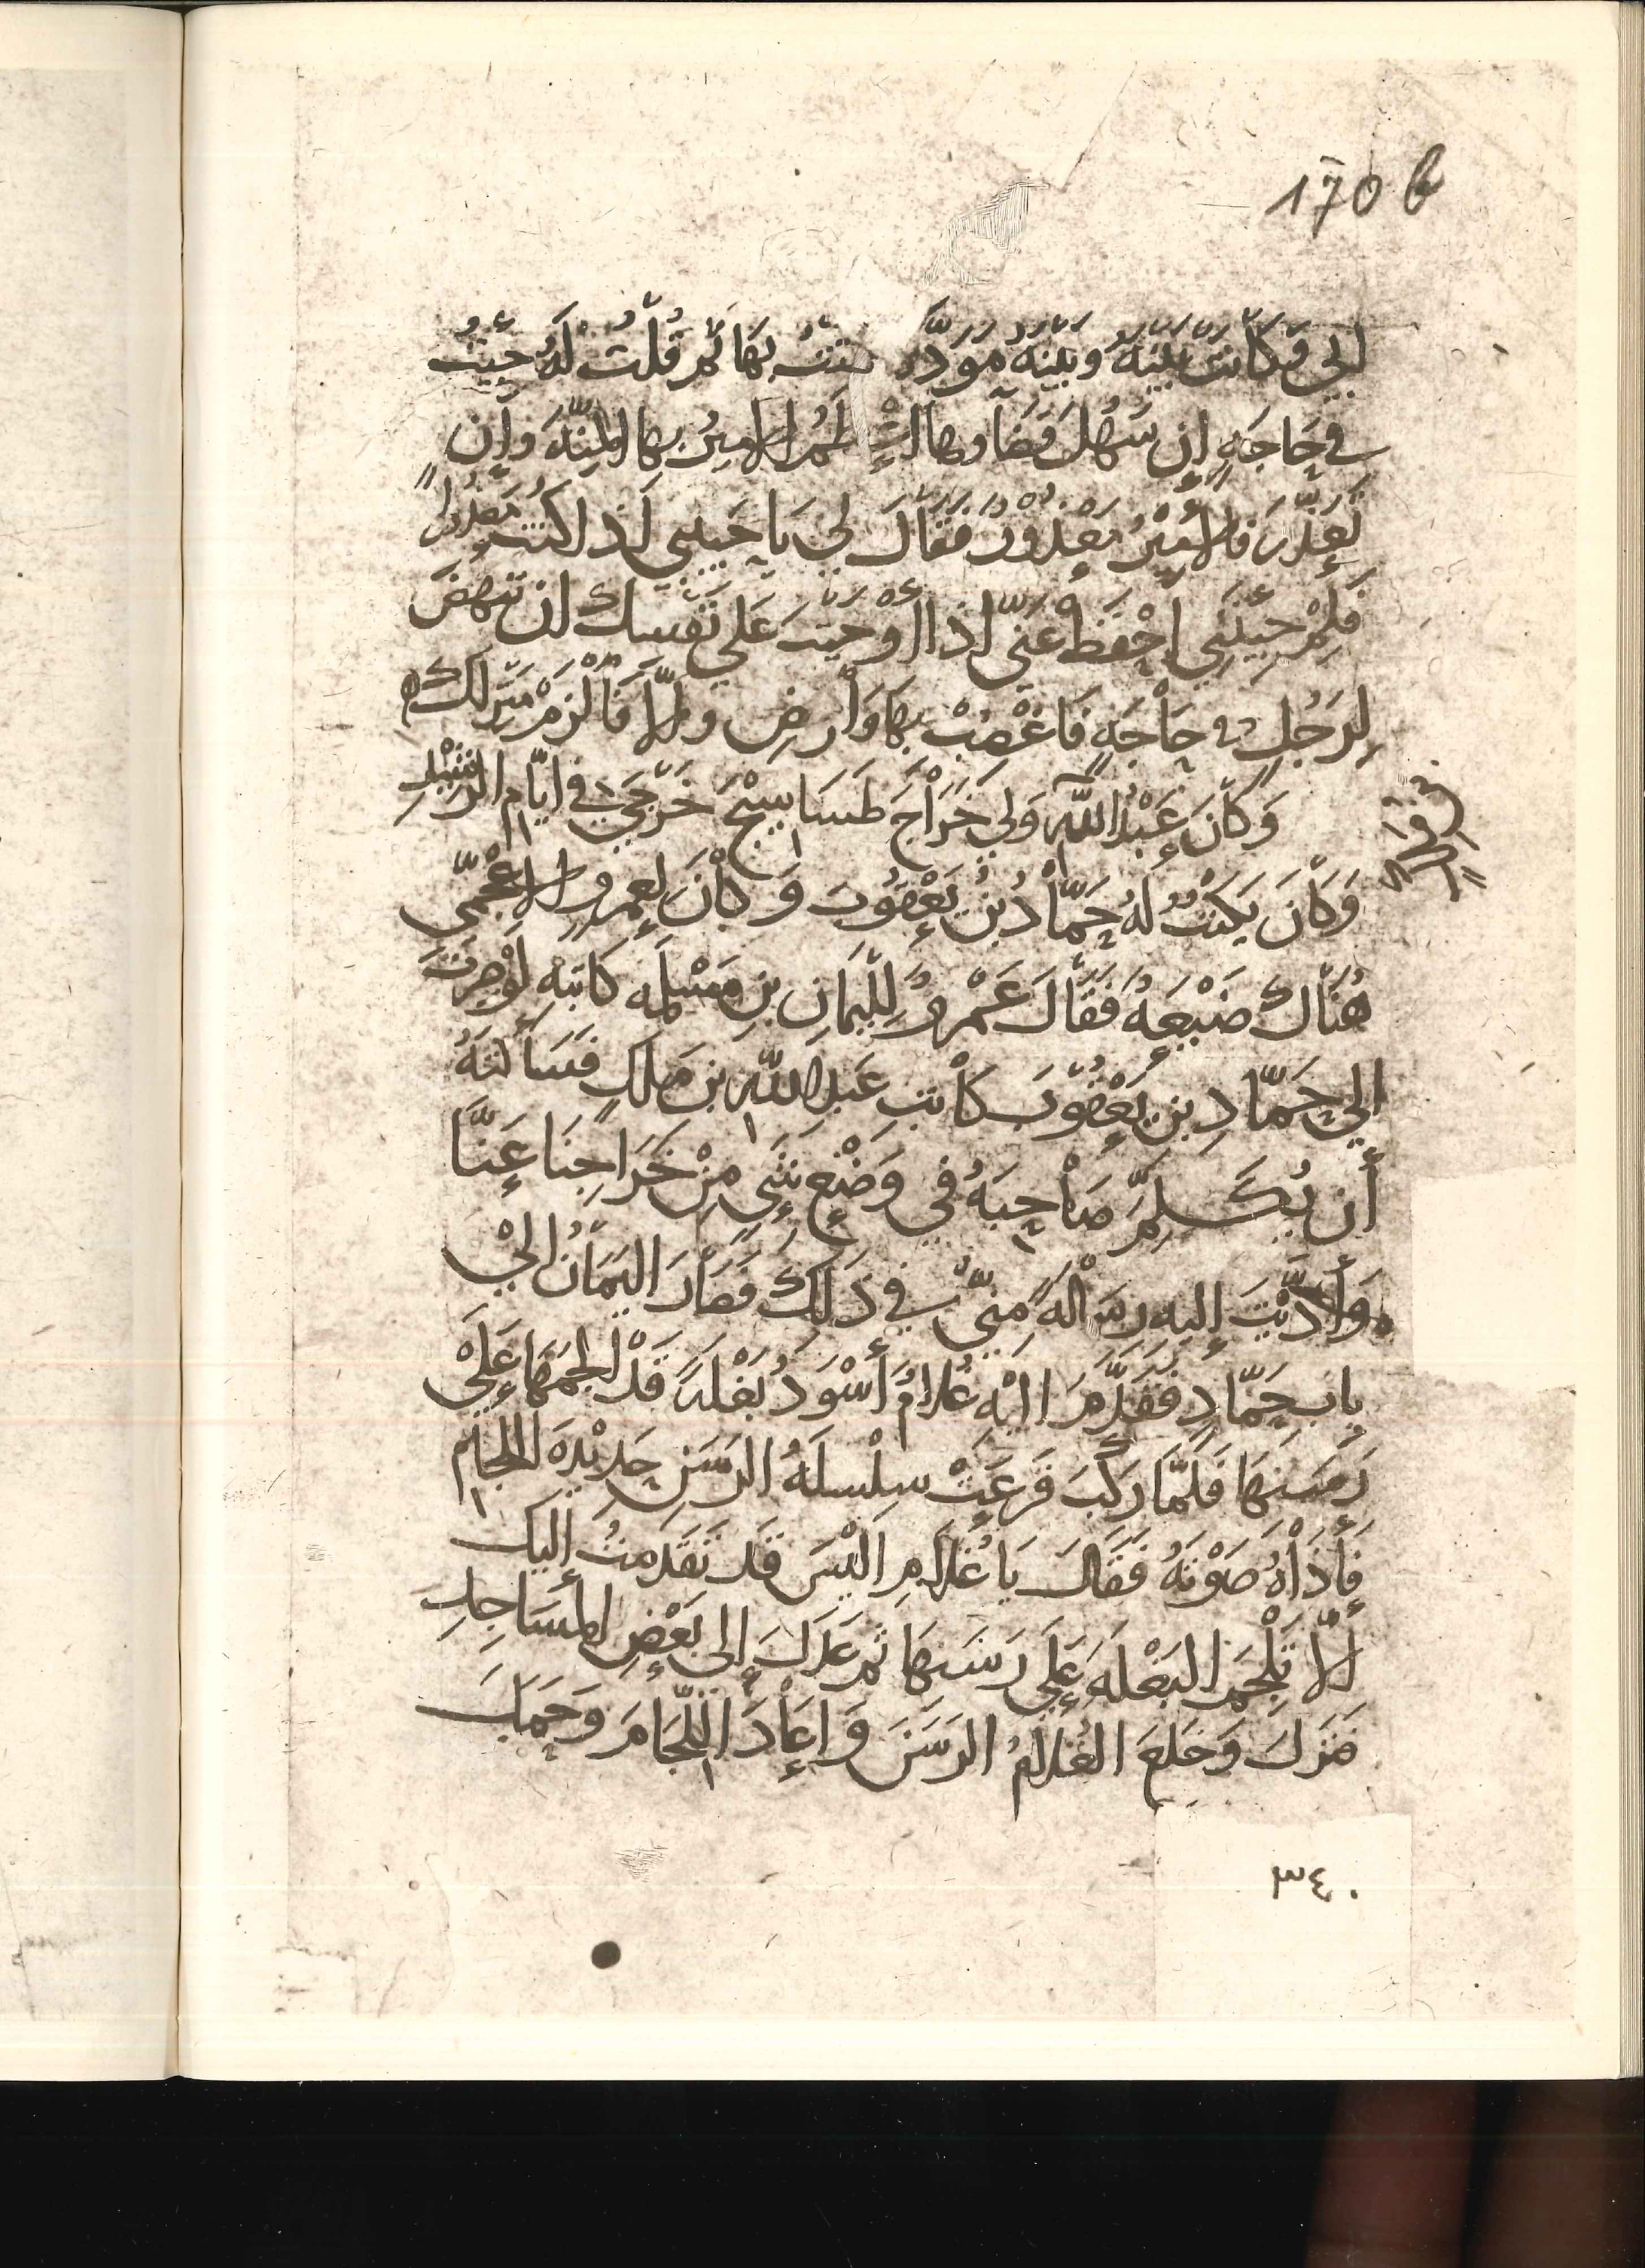 170 b
إلي فَكَانت بينَهُ وبَينَه مَوَدَّه متت بِهَا ثُم قُلتُ لَهُ جيتُ
في حَاجَهٍ إن سَهُلَ قضَاوها الأمير بها المِنّه وإن
تَعذّر فالأمير معذُورٌ فَقَالَ لي يَا حبيبي اذا كنت معذُوراً
فَلِمْ جِيتَني إحْفَظ عَنّي اذا اوجبت عَلي نَفْسِك ان تنهض
لِرَجُلٍ في حَاجَهٍ فَاغْضبْ بِهَا وَأرضِ وإلّا فَالزمْ منزلك
وَكَانَ عَبْدُ اللّه وَلي خَرَاجَ طَسَاسِيْجَ خَرجي في ايّام الرشيْدِ
وَكَانَ يكتُبُ لَهُ حَمّادُ بْنُ يَعْقُوبَ وَكَانَ لعمرو الأعْجمي
هُنَاك ضَيْعَهُ فَقَالَ عَمْرو لِليَمَانِ بنِ مَسْلمه كَاتبه لَوْ صِرتَ
الي حَمّادِ بنِ يَعْقُوبَ كَاتبِ عَبدِ اللّه بنِ مَلكٍ فسَألتهُ
أن يُكَلِمَ صَاحِبَهُ في وَضْعِ شَيٍ مِنْ خَرَاجِنَا عَنَّا
وَأدّيْتَ إليه رِسَالَهً مِنّي في ذَلكَ فَصَارَ اليَمَانُ الي
بابِ حَمّادٍ فَقَدَّمَ اليْهِ غُلامٌ أسْوَدُ بَغْلَهً قَدْ الجَمَهَا عَلَي
رَسَنهَا فَلَمَّا رَكبَ قَرعَتْ سِلْسلَهُ الرسَنِ حَديْدَه اللجَام
فَأذَاهُ صَوْتهُ فَقَالَ يَا غُلاَمِ الَيْسَ قَد تَقَدمتُ إليك
الّا تُلجمَ البَغْلَه عَلَي رَسَنهَا ثم عَدَلَ إلي بَعْضِ المسَاجدِ
فنَزلَ وَخلعَ الغُلاَمُ الرسَنَ وَاعَادَ اللّجَامَ وَرَكِبَ
٣٤٠